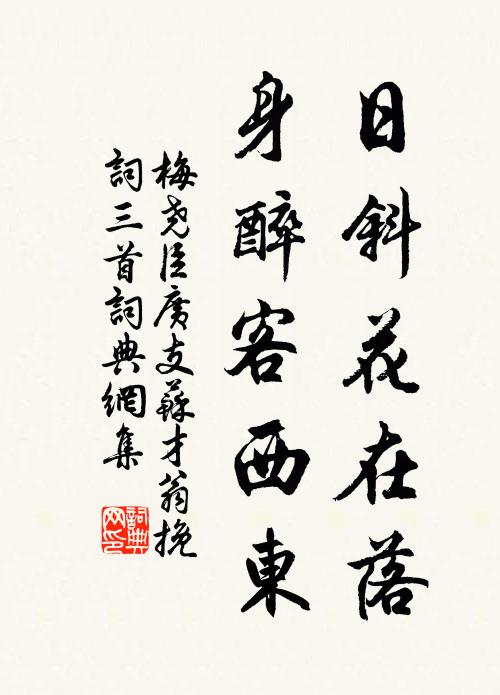 日斜花在落
身醉客西東
梅堯臣度支蘇才翁挽
詞三首詞典網集
詞典网印